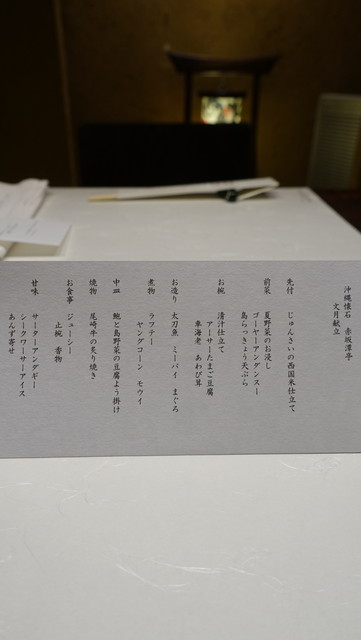 沖縄懐石 赤坂潭亭
文月献立
先付 じゅんさいの西国米仕立て
前菜 夏野菜のお浸し
ゴーヤーアンダンスー
島らっきょう天ぷら
お椀 清汁仕立て
アーサーたまご豆腐
車海老 あわび茸
お造り 太刀魚 ミーバイ まぐろ
煮物 ラフテー
ヤングコーン モウイ
中皿 鮑と島野菜の豆腐よう掛け
焼物 尾崎牛の炙り焼き
お食事 ジューシー
止椀 香物
甘味 サーターアンダギー
シークワーサーアイス
あんず寄せ